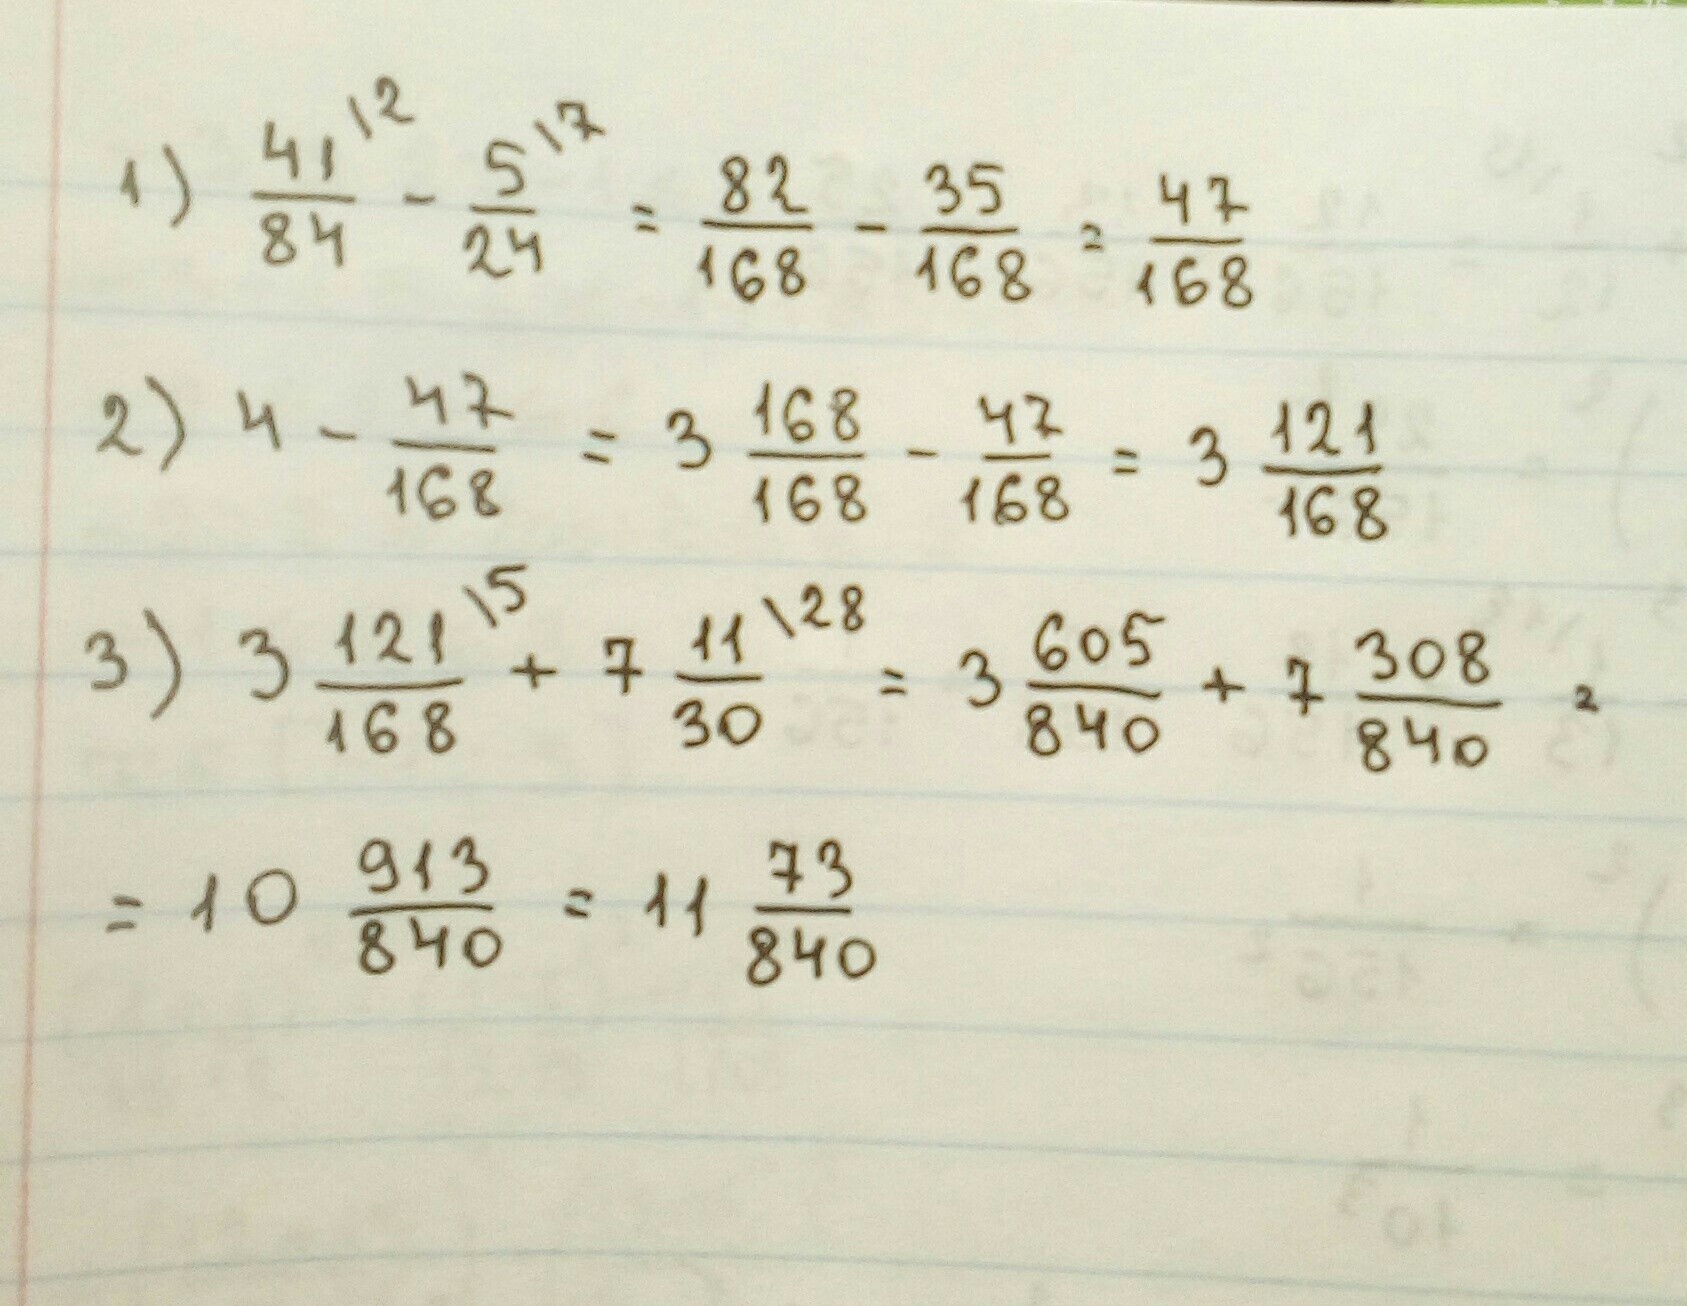 1) 41\2/84 - 5\7/24 = 82/168 - 35/168 = 47/168
2) 4 - 47/168 = 3 168/168 - 47/168 = 3 121/168
3) 3 121\5/168 + 7 11\28/30 = 3 605/840 + 7 308/840 =
= 10 913/840 = 11 73/840